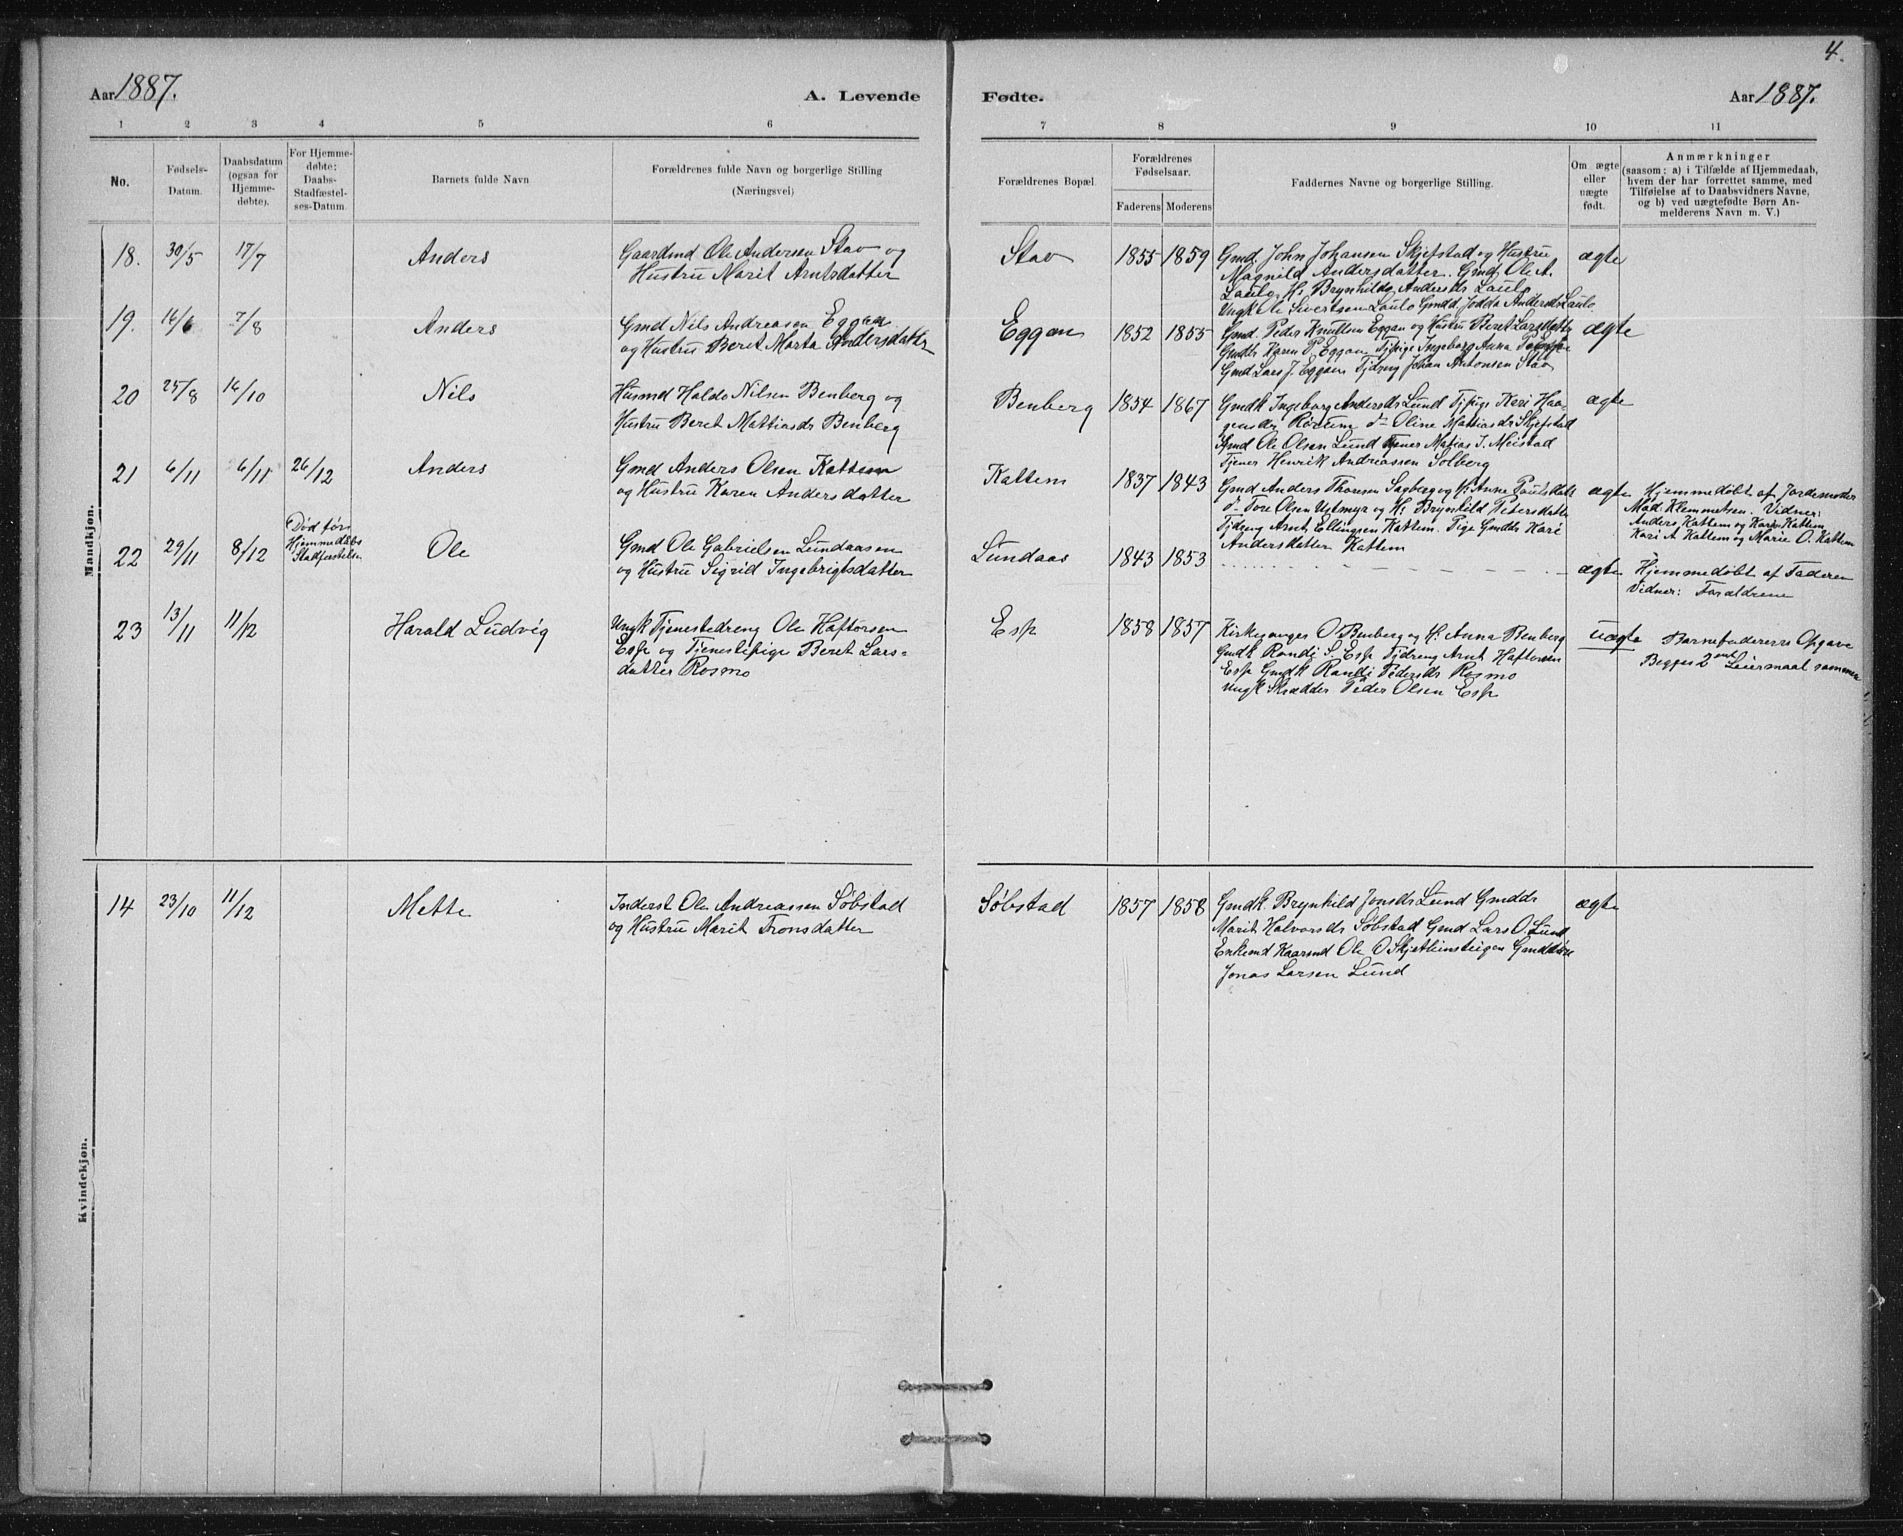 4.
Aar 1887.
A. Levende
Fødte.
Aar 1887.
1 2 3 4 5 6 7 8 9 10 11
No.
Fødsels-
Datum.
Daabsdatum
(ogsaa for
Hjemme-
døbte).
For Hjemme-
døbte:
Daabs-
Stadfæstel-
ses-Datum.
Barnets fulde Navn
Forældrenes fulde Navn og borgerlige Stilling
(Næringsvei)
Forældrenes Bopæl.
Forældrenes
Fødselsaar.
Faderens Moderens
Faddernes Navne og borgerlige Stilling.
Om ægte
eller
uægte
født.
Anmærkninger
(saasom: a) i Tilfælde af Hjemmedaab,
hvem der har forrettet samme, med
Tilføielse af to Daabsvidners Navne,
og b) ved uægtefødte Børn An-
melderens Navn m. V.)
Mandkjøn.
18. 30/5 17/7 Anders
Gaardmd Ole Andersen Stav og
Hustru Marit Arntsdatter
Stav 1855 1859
Gmd. John Johansen Skjefstad og Hustru
Magnild Andersdatter. Gmd Ole A.
Laulo H: Brynhilda Andersdr Laulo
Ungk Ole Sivertsen Laulo Gmdd Jodda Andersdr Laulo
ægte
19. 16/6 7/8 Anders
Gmd Nils Andreasen Eggan
og Hustru Beret Marta Andersdatter
Eggan 1852 1855
Gmd. Peder Knutsen Eggan og Hustru Beret Larsdatter
Gmddr Karen P. Eggan Tjpige Ingeborg Anna
Gmd Lars J. Eggan Tjdreng Johan Antonsen Stav
ægte
20 25/8 16/10 Nils
Husmd Haldo Nilsen Benberg og
Hustru Beret Mattiasdr Benberg
Benberg 1854 1867
Gmdk Ingeborg Andersdr Lund Tjpige Kari Haa-
gensdr Röstum d° Oline Mattiasdr Skjefstad
Gmd Ole Olsen Lund Tjener Matias J. Meistad
Tjener Henrik Andreassen Solberg
ægte
21 6/11 6/11 26/12 Anders
Gmd Anders Olsen Kattem
og Hustru Karen Andersdatter
Kattem 1837 1843
Gmd Anders Thoresen Sagberg og H: Anne Paulsdatr
d° Tore Olsen Ustmyr og H: Brynhild Pedersdatter
Tjdreng Arnt Ellingsen Kattem. Pige Gmddr Kari
Andersdatter Kattem
ægte
Hjemmedøbt af Jordemoder
Mad. Klemmetsen. Vidner:
Anders Kattem og Karen Kattem
Kari A Kattem og Marie O. Kattem
22 29/11 8/12
Død før
Hjemmedaabs
Stadfæstelsen
Ole
Gmd Ole Gabrielsen Lundaasen
og Hustru Sigrid Ingebrigtsdatter
Lundaas 1843 1853
ægte
Hjemmedøbt af Faderen
Vidner: Forældrene
23 13/11 11/12 Harald Ludvig
Ungk Tjenestedreng Ole Haftorsen
Esp og Tjenestepige Beret Lars-
datter Rosmo
Esp 1858 1857
Kirkesanger O Benberg og H: Anna Benberg
Gmdk Randi S. Esp Tjdreng Arnt Haftorsen
Esp Gmdk Randi Pedersdr Rosmo
Ungk Skrædder Peder Olsen Esp
uægte
Barnefaderens Opgave
Begges 2det Leiermaal sammen
Kvindekjøn.
14 23/10 11/12 Mette
Inderst Ole Andreassen Söbstad
og Hustru Marit Tronsdatter
Söbstad 1857 1858
Gmdk. Brynhild Jonsdr Lund Gmddr
Marit Halvorsdr Söbstad Gmd Lars O. Lund
Enkemd Kaarmd Ole O Skjetleinsteigen Gmdsön
Jonas Larsen Lund
ægte